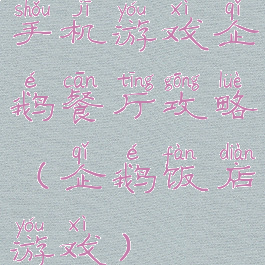 shǒu jī yóu xì qǐ
手机游戏企
é cān tīng gōng lüè
鹅餐厅攻略
qǐ é fàn diàn
（企鹅饭店
yóu xì
游戏）